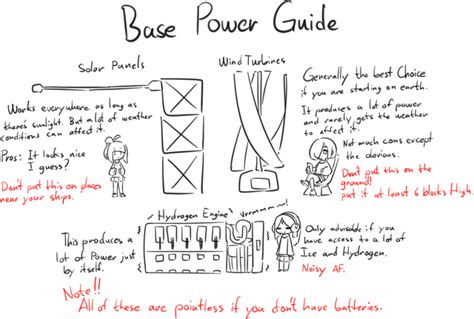 Base Power Guide
Solar Punels
Works everywhere as long as
there's sunlight. But a lot of weather
conditions can affect it.
Pros: It looks nice
I guess?
Don't put this on places
near your ships.
Wind Turbines
Generally the best Choice
if you are starting on earth.
It produces a lot of power
and rarely gets the weather
to affect it.
Not much cons except
the obvious.
Don't put this on the
ground!
put it at least 6 blocks High.
Hydrogen Engine
Vrrmmmm
This produces a
lot of Power just
by itself.
Only advisable if you
have access to a lot of
Ice and Hydrogen.
Noisy AF.
Note!!
All of these are pointless if you don't have batteries.